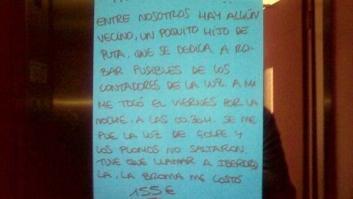 ENTRE NOSOTROS HAY ALGÚN
VECINO, UN POQUITO HIJO DE
PUTA, QUE SE DEDICA A RO-
BAR FUSIBLES DE LOS
CONTADORES DE LA LUZ. A MI
ME TOCÓ EL VIERNES POR LA
NOCHE, A LAS 00.30H. SE ME
FUE LA LUZ DE GOLPE Y
LOS PLOMOS NO SALTARON.
TUVE QUE LLAMAR A IBERDRO
LA, LA BROMA ME COSTÓ
155€